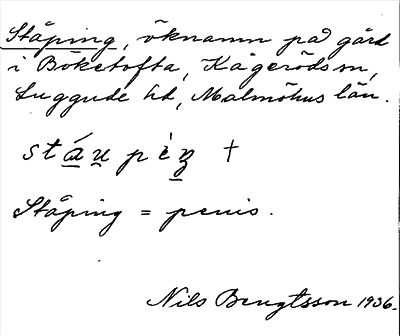 Ståping, öknamn på gård
i Böketofta, Kågeröds sn,
Luggude hd, Malmöhus län.
stáu̠pèn̠ †
Ståping = penis.
Nils Bengtsson 1936.